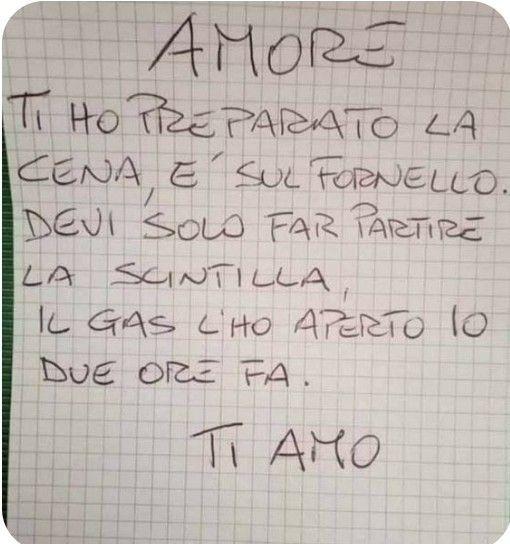 AMORE
TI HO PREPARATO LA
CENA, E' SUL FORNELLO.
DEVI SOLO FAR PARTIRE
LA SCINTILLA,
IL GAS L'HO APERTO IO
DUE ORE FA.
TI AMO